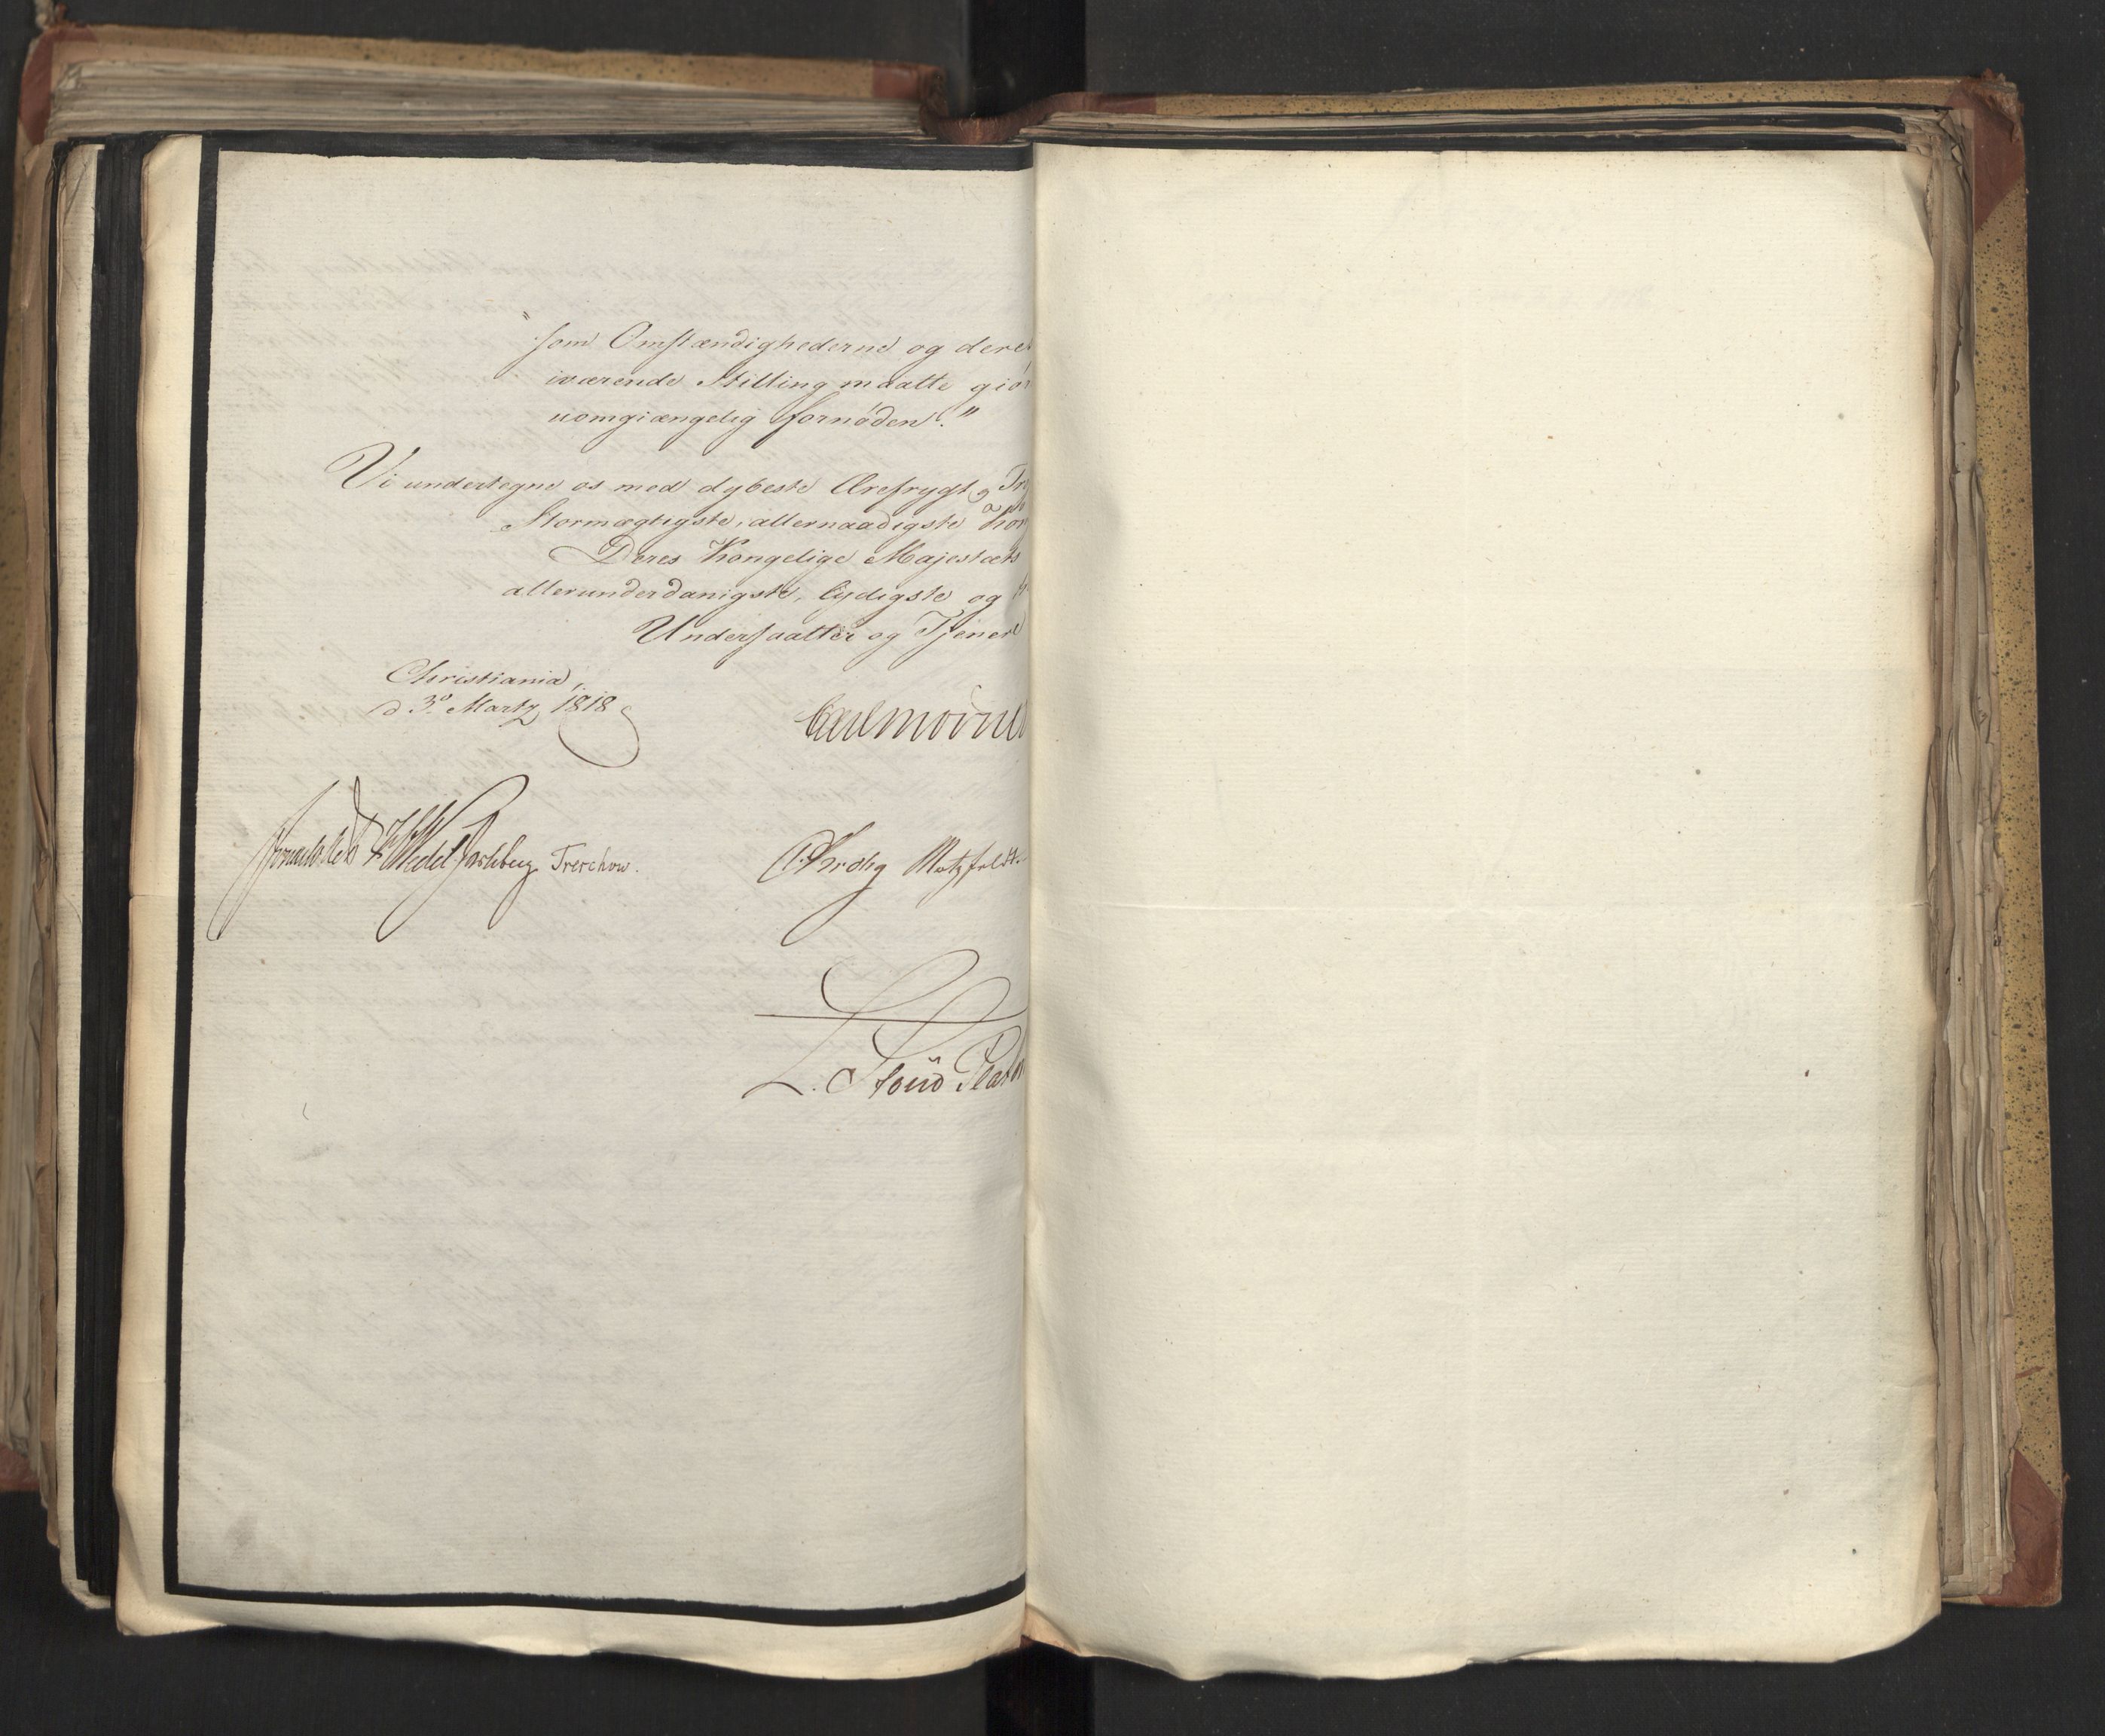 "som Omstændighederne og dere
iværende Stilling maatte giør
uomgiængelig fornøden."
Vi undertegne os med dybeste Ærefrygt og Tro
Stormægtigste, allernaadigste Kon
Deres Kongelige Majestæts
allerunderdanigste, lydigste og
Undersaatter og Tjenere
Christiania,
d 3º Martz 1818
Carl Mörner
Sommerhielm HWedel Jarlsberg Treschow. CKrohg Motzfeldt.
L. Stoud Platou